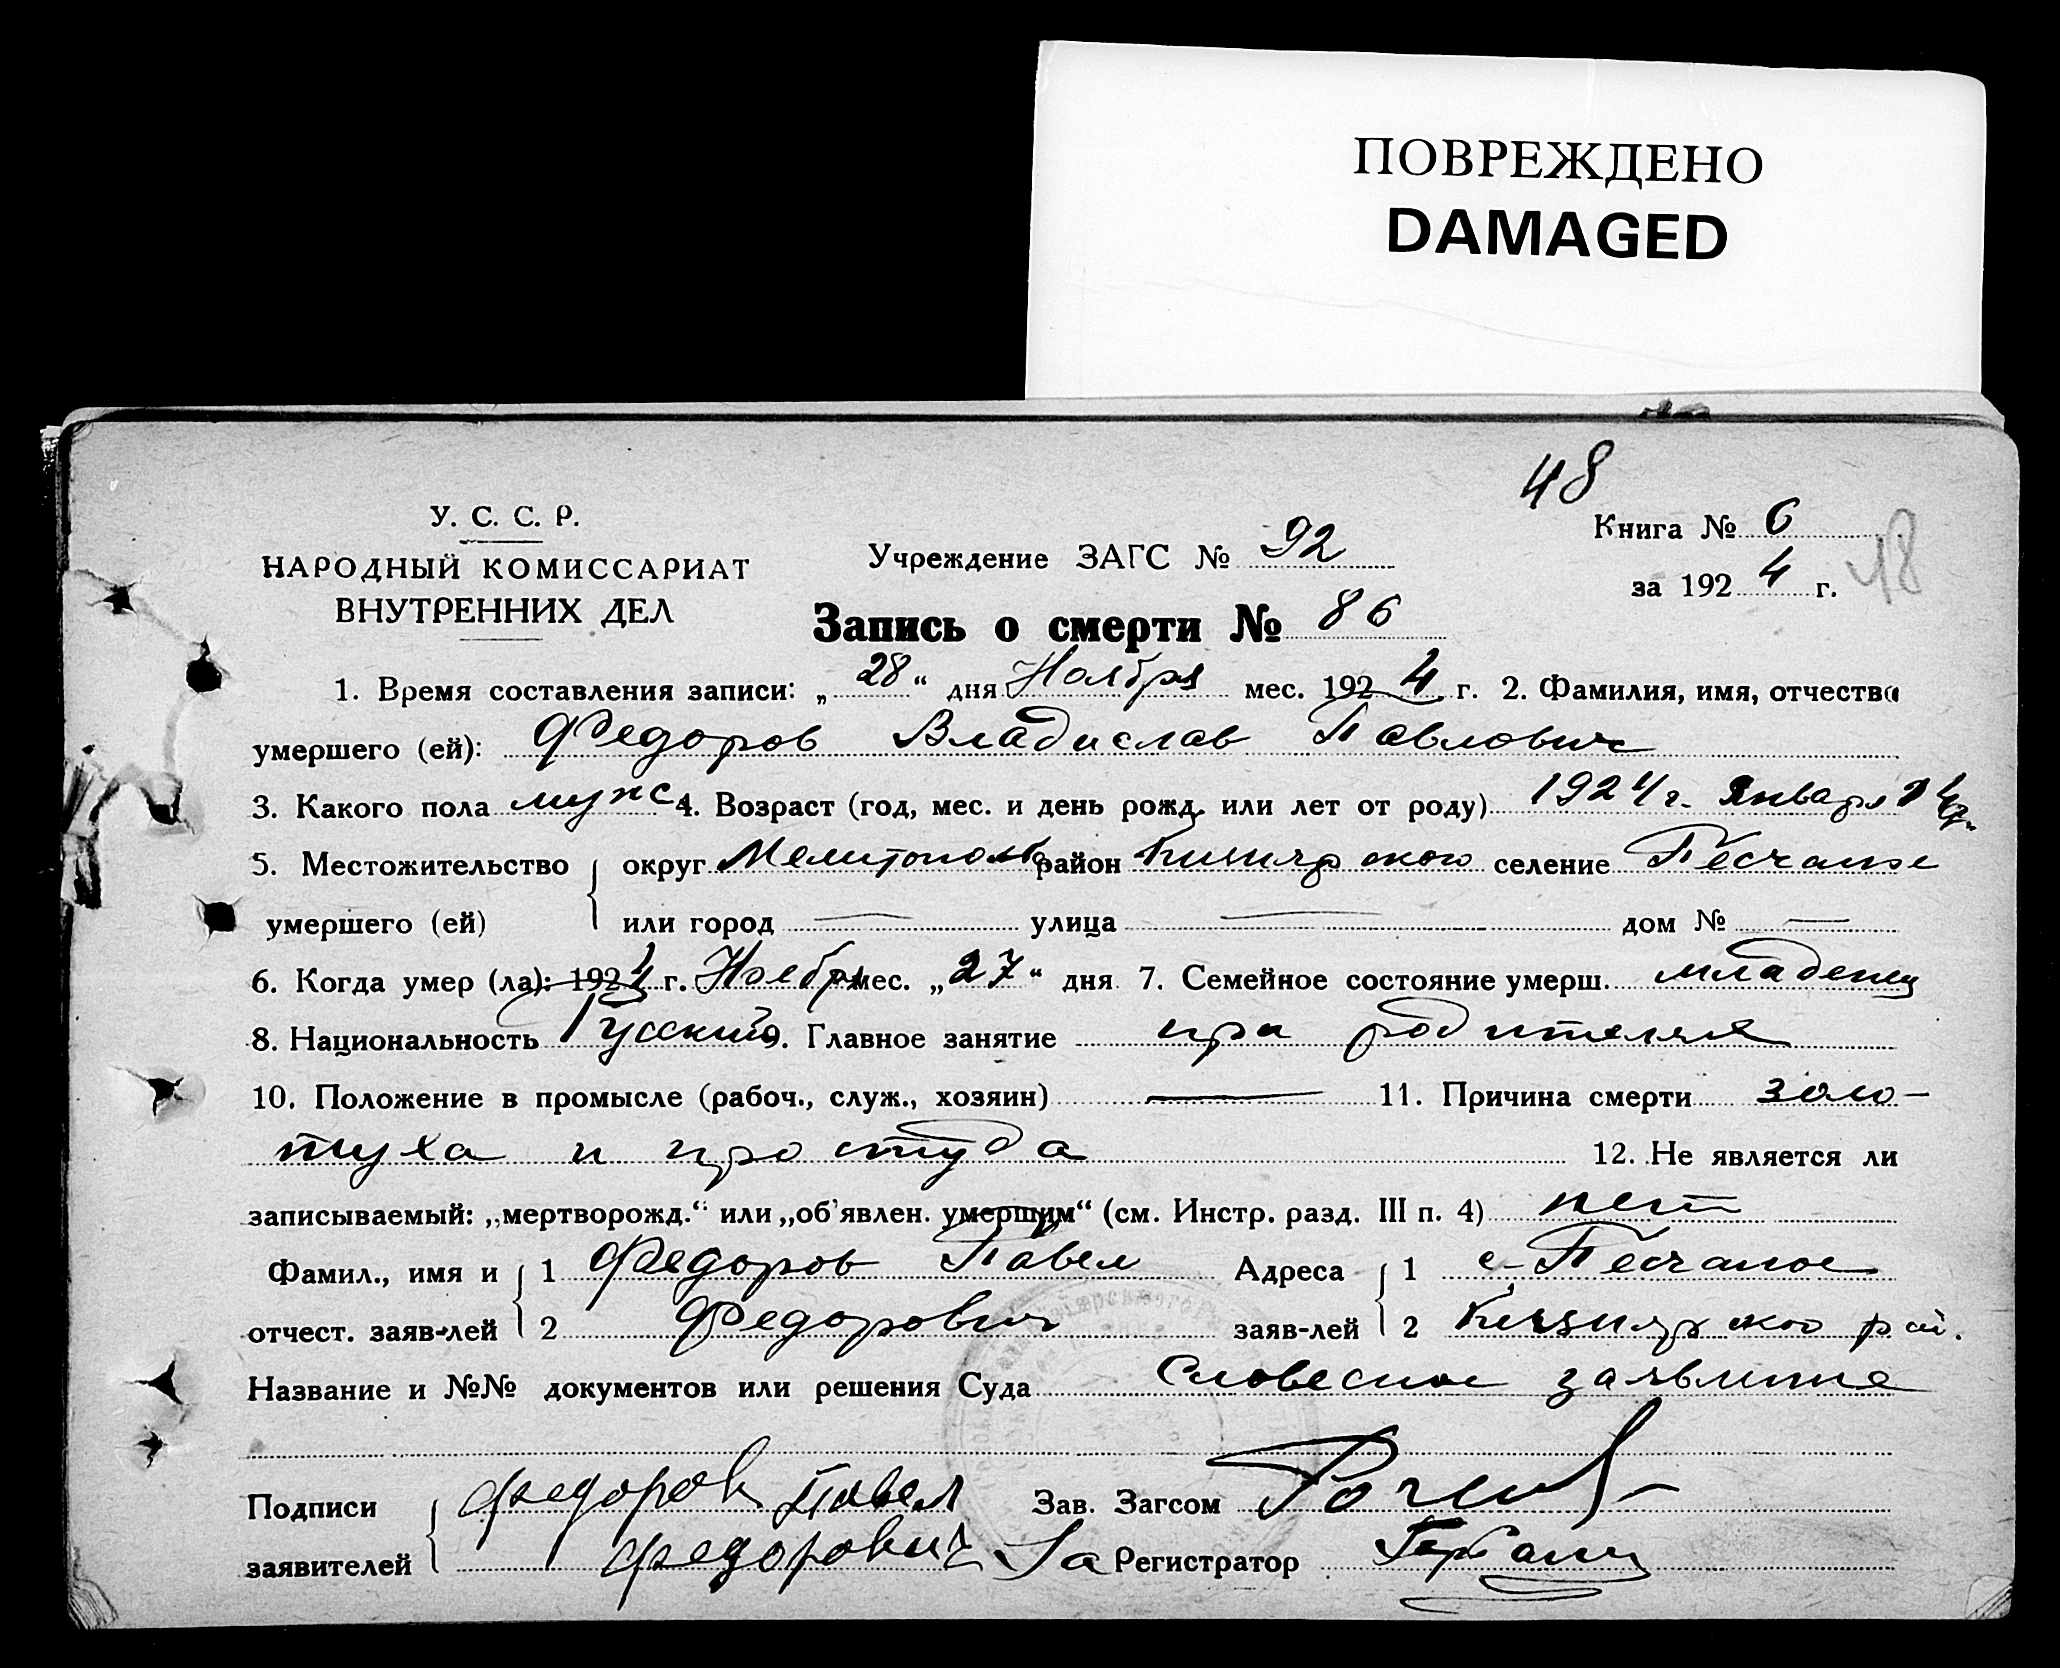 ПОВРЕЖДЕНО
DAMAGED
48
У. С. С. Р.
НАРОДНЫЙ КОМИССАРИАТ
ВНУТРЕННИХ ДЕЛ
Учреждение ЗАГС № 92
Книга № 6
за 1924 г.
48
Запись о смерти № 86
1. Время составления записи: „28“ дня Ноября мес. 1924 г. 2. Фамилия, имя, отчество
умершего (ей): Федоров Владислав Павлович
3. Какого пола мужс 4. Возраст (год, мес. и день рожд. или лет от роду) 1924 г. Января
5. Местожительство округ Мелитополь район селение Песчаное
умершего (ей) или город — улица — дом № —
6. Когда умер (ла): 1924 г. Ноября мес. „27“ дня 7. Семейное состояние умерш. младенец
8. Национальность Русский 9. Главное занятие при родителях
10. Положение в промысле (рабоч., служ., хозяин) — 11. Причина смерти золо-
туха и простуда 12. Не является ли
записываемый: „мертворожд.“ или „об'явлен. умершим“ (см. Инстр. разд. III п. 4) нет
Фамил., имя и 1 Федоров Павел Адреса 1 с. Песчаное
отчест. заяв-лей 2 Федорович заяв-лей 2 рай.
Название и №№ документов или решения Суда Словесное заявление
Подписи Федоров Павел Зав. Загсом
заявителей Федорович За Регистратор